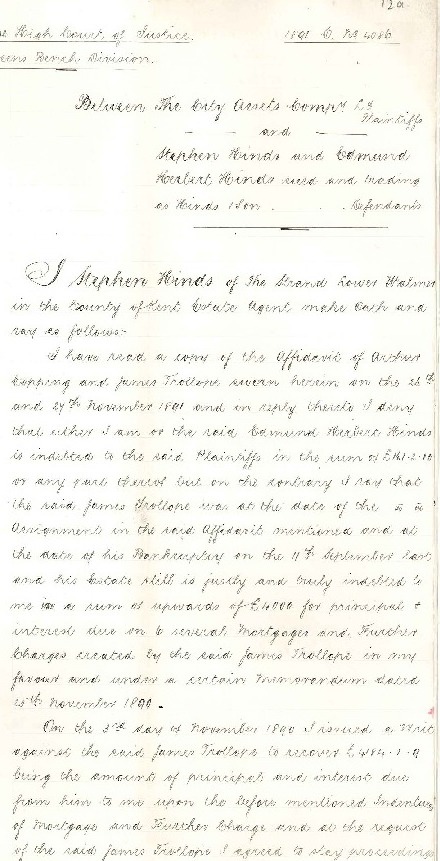 12a
e High Court of Justice. 1891 C. No 4086
eens Bench Division.
Between The City Assets Compy Ld
Plaintiffs
and
Stephen Hinds and Edmund
Herbert Hinds sued and trading
as Hinds & Son Defendants
I Stephen Hinds of The Strand Lower Walmer
in the County of Kent Estate Agent make Oath and
say as follows:-
I have read a copy of the Affidavit of Arthur
Topping and James Trollope sworn herein on the 26th
and 27th November 1891 and in reply thereto I deny
that either I am or the said Edmund Herbert Hinds
is indebted to the said Plaintiffs in the sum of
or any part thereof but on the contrary I say that
the said James Trollope was at the date of the
Assignment in the said Affidavit mentioned and at
the date of his Bankruptcy on the 11th September last
and his Estate still is justly and truly indebted to
me in a sum of upwards of £4000 for principal &
interest due on to several Mortgages and Further
Charges created by the said James Trollope in my
favour and under a certain Memorandum dated
25th November 1890.
On the 3rd day of November 1890 I issued a Writ
against the said James Trollope to recover £4184.1.9
being the amount of principal and interest due
from him to me upon the before mentioned Indenture
of Mortgage and Further Charge and at the request
of the said James Trollope I agreed to stay proceedings